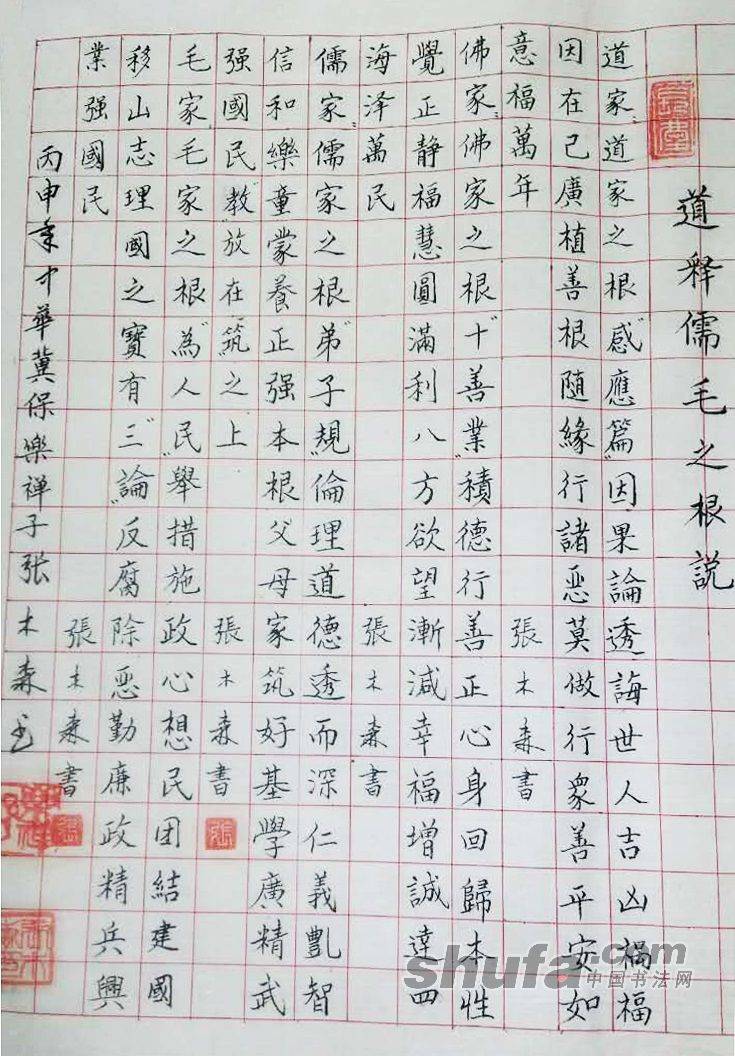 道释儒毛之根説
道家道家之根"感應篇"因果論透誨世人吉凶禍福
因在己廣植善根随緣行諸惡莫做行衆善平安如
意福萬年張木森書
佛家佛家之根"十善業"積德行善正心身回歸本性
覺正静福慧圓滿利八方欲望漸減幸福增誠達四
海泽萬民張木森書
儒家儒家之根"弟子規"倫理道德透而深仁義豊智
信和樂童蒙養正强本根父母家筑好基學廣精武
强國民"教"放在筑之上張木森書
毛家毛家之根"為人民"舉措施政心想民团結建國
移山志理國之寶有"三論"反腐除惡勤廉政精兵興
業强國民張木森書
丙申年中華冀保樂禅子张木森书
shufa.com
中国书法网